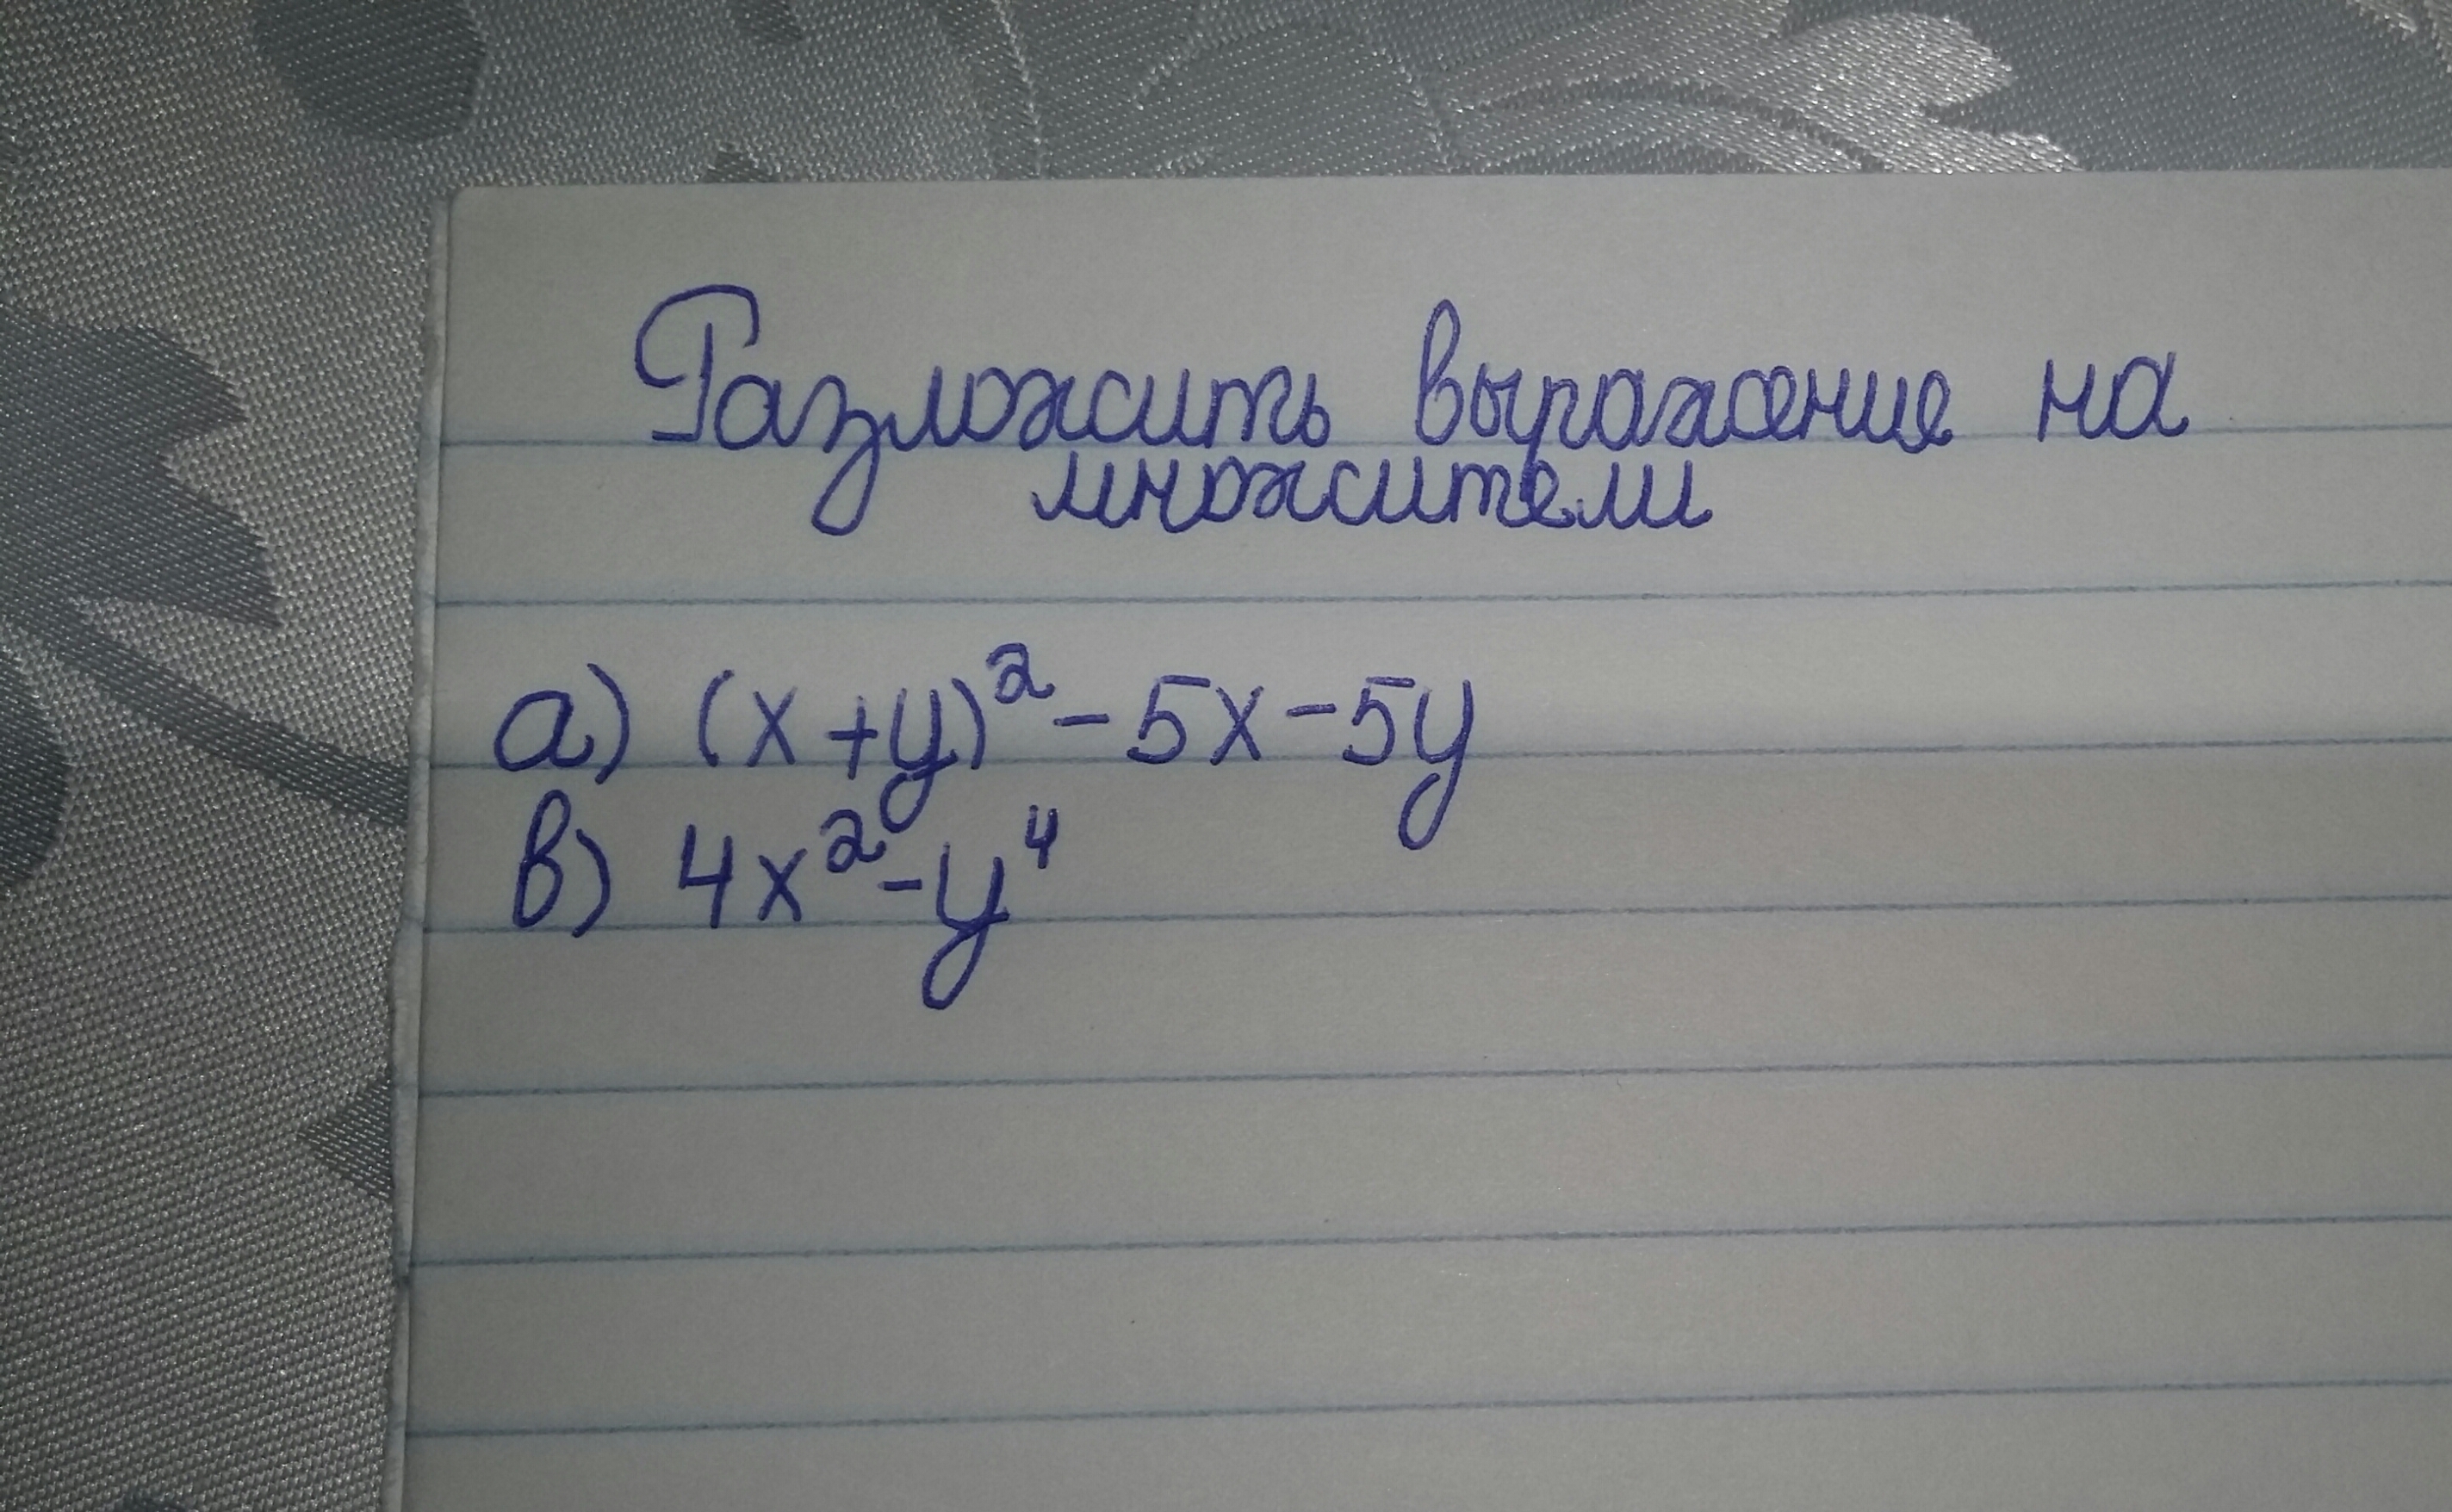 Разложить выражение на
множители
а) (x+y)²-5x-5y
в) 4x²-y⁴